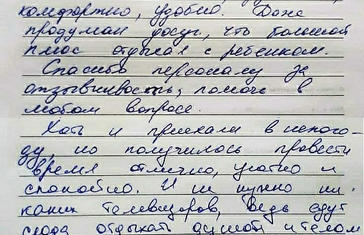 комфортно, удобно. Даже
продуман досуг, что большой
плюс отдыха с ребенком.
Спасибо персоналу за
отзывчивость, помощь в
любом вопросе.
Хоть и приехали в непого-
ду, но получилось провести
время отлично, уютно и
спокойно. И не нужно ни-
каких телевизоров, ведь едут
сюда отдыхать душой и телом